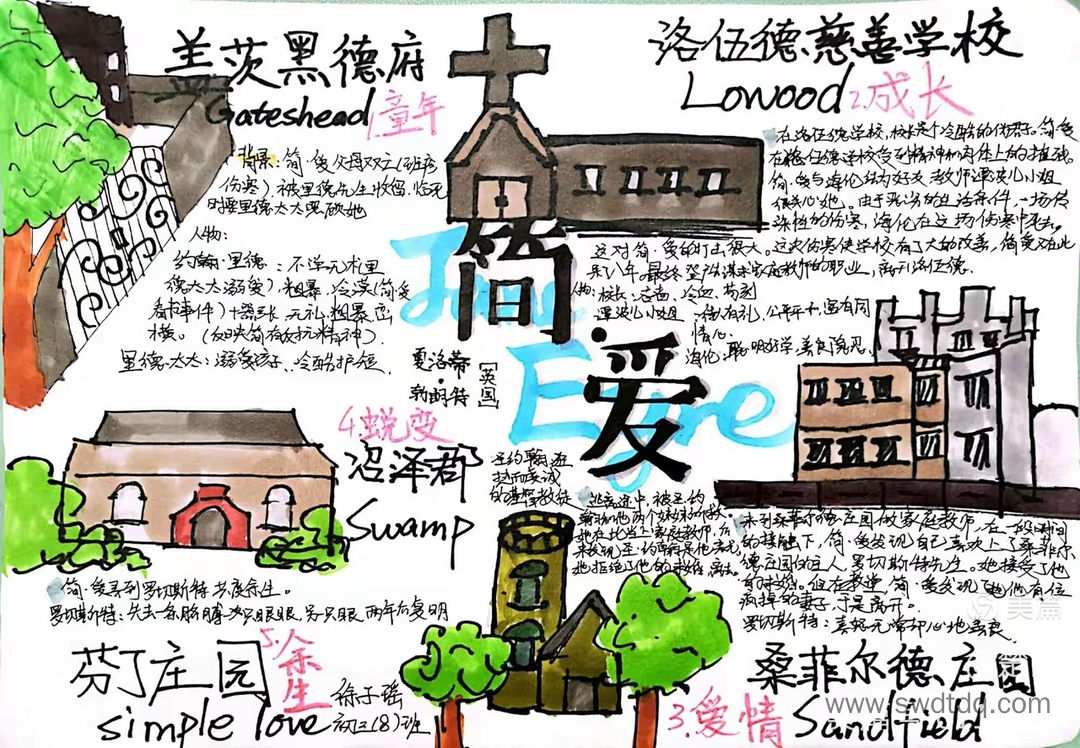 盖茨黑德府
Gateshead 1.童年
背景:简·爱父母双亡(班疹
伤寒)被里德先生收留,临死
时要里德太太照顾她
人物:
约翰·里德:不学无术(里
德太太溺爱),粗暴,冷漠(简爱
看书事件)
横。(反映简有反抗精神)
里德太太:溺爱孩子,冷酷护短.
洛伍德慈善学校
Lowood 2.成长
在洛伍德学校,校长是个冷酷的伪君子。简·爱
在洛伍德学校受到精神和肉体上的摧残。
简·爱与海伦结为好友,教师谭波儿小姐
很关心她。由于恶劣的生活条件,一场传
染性的伤寒,海伦在这场伤寒中死去。
这对简·爱的打击很大。这次伤寒使学校有了大的改善,简·爱在此
呆了八年。最终坚决谋求家庭教师的职业,离开洛伍德。
人物:校长:冷血、苛刻
谭波儿小姐:彬彬有礼,公平平和,富有同
情心.
海伦:聪明好学,善良隐忍.
Jane
Eyre
简·爱
夏洛蒂·
勃朗特
[英国]
4.蜕变
沼泽郡
Swamp
圣约翰:进
的基督教徒
逃离途中,被圣约
翰和他两个妹妹所救。
她在此当上家庭教师,后
来发现圣·约翰是他表兄
她拒绝了他的求婚,离去。
来到桑菲尔德庄园做家庭教师,在一段时间
的接触下,简·爱发现自己喜欢上了桑菲尔
德庄园的主人,罗切斯特先生。她接受了他
的求婚。但在教堂,简·爱发现了他有位
疯掉的妻子,于是离开。
罗切斯特:喜怒无常却心地善良.
桑菲尔德庄园
3.爱情 Sandfield
简·爱寻到罗切斯特,共度余生。
罗切斯特:失去一条胳膊,一只眼睛,另只眼两年后复明
芬丁庄园 5.余生
simple love
徐子瑶
初三(8)班
美篇
www.swdtdq.com